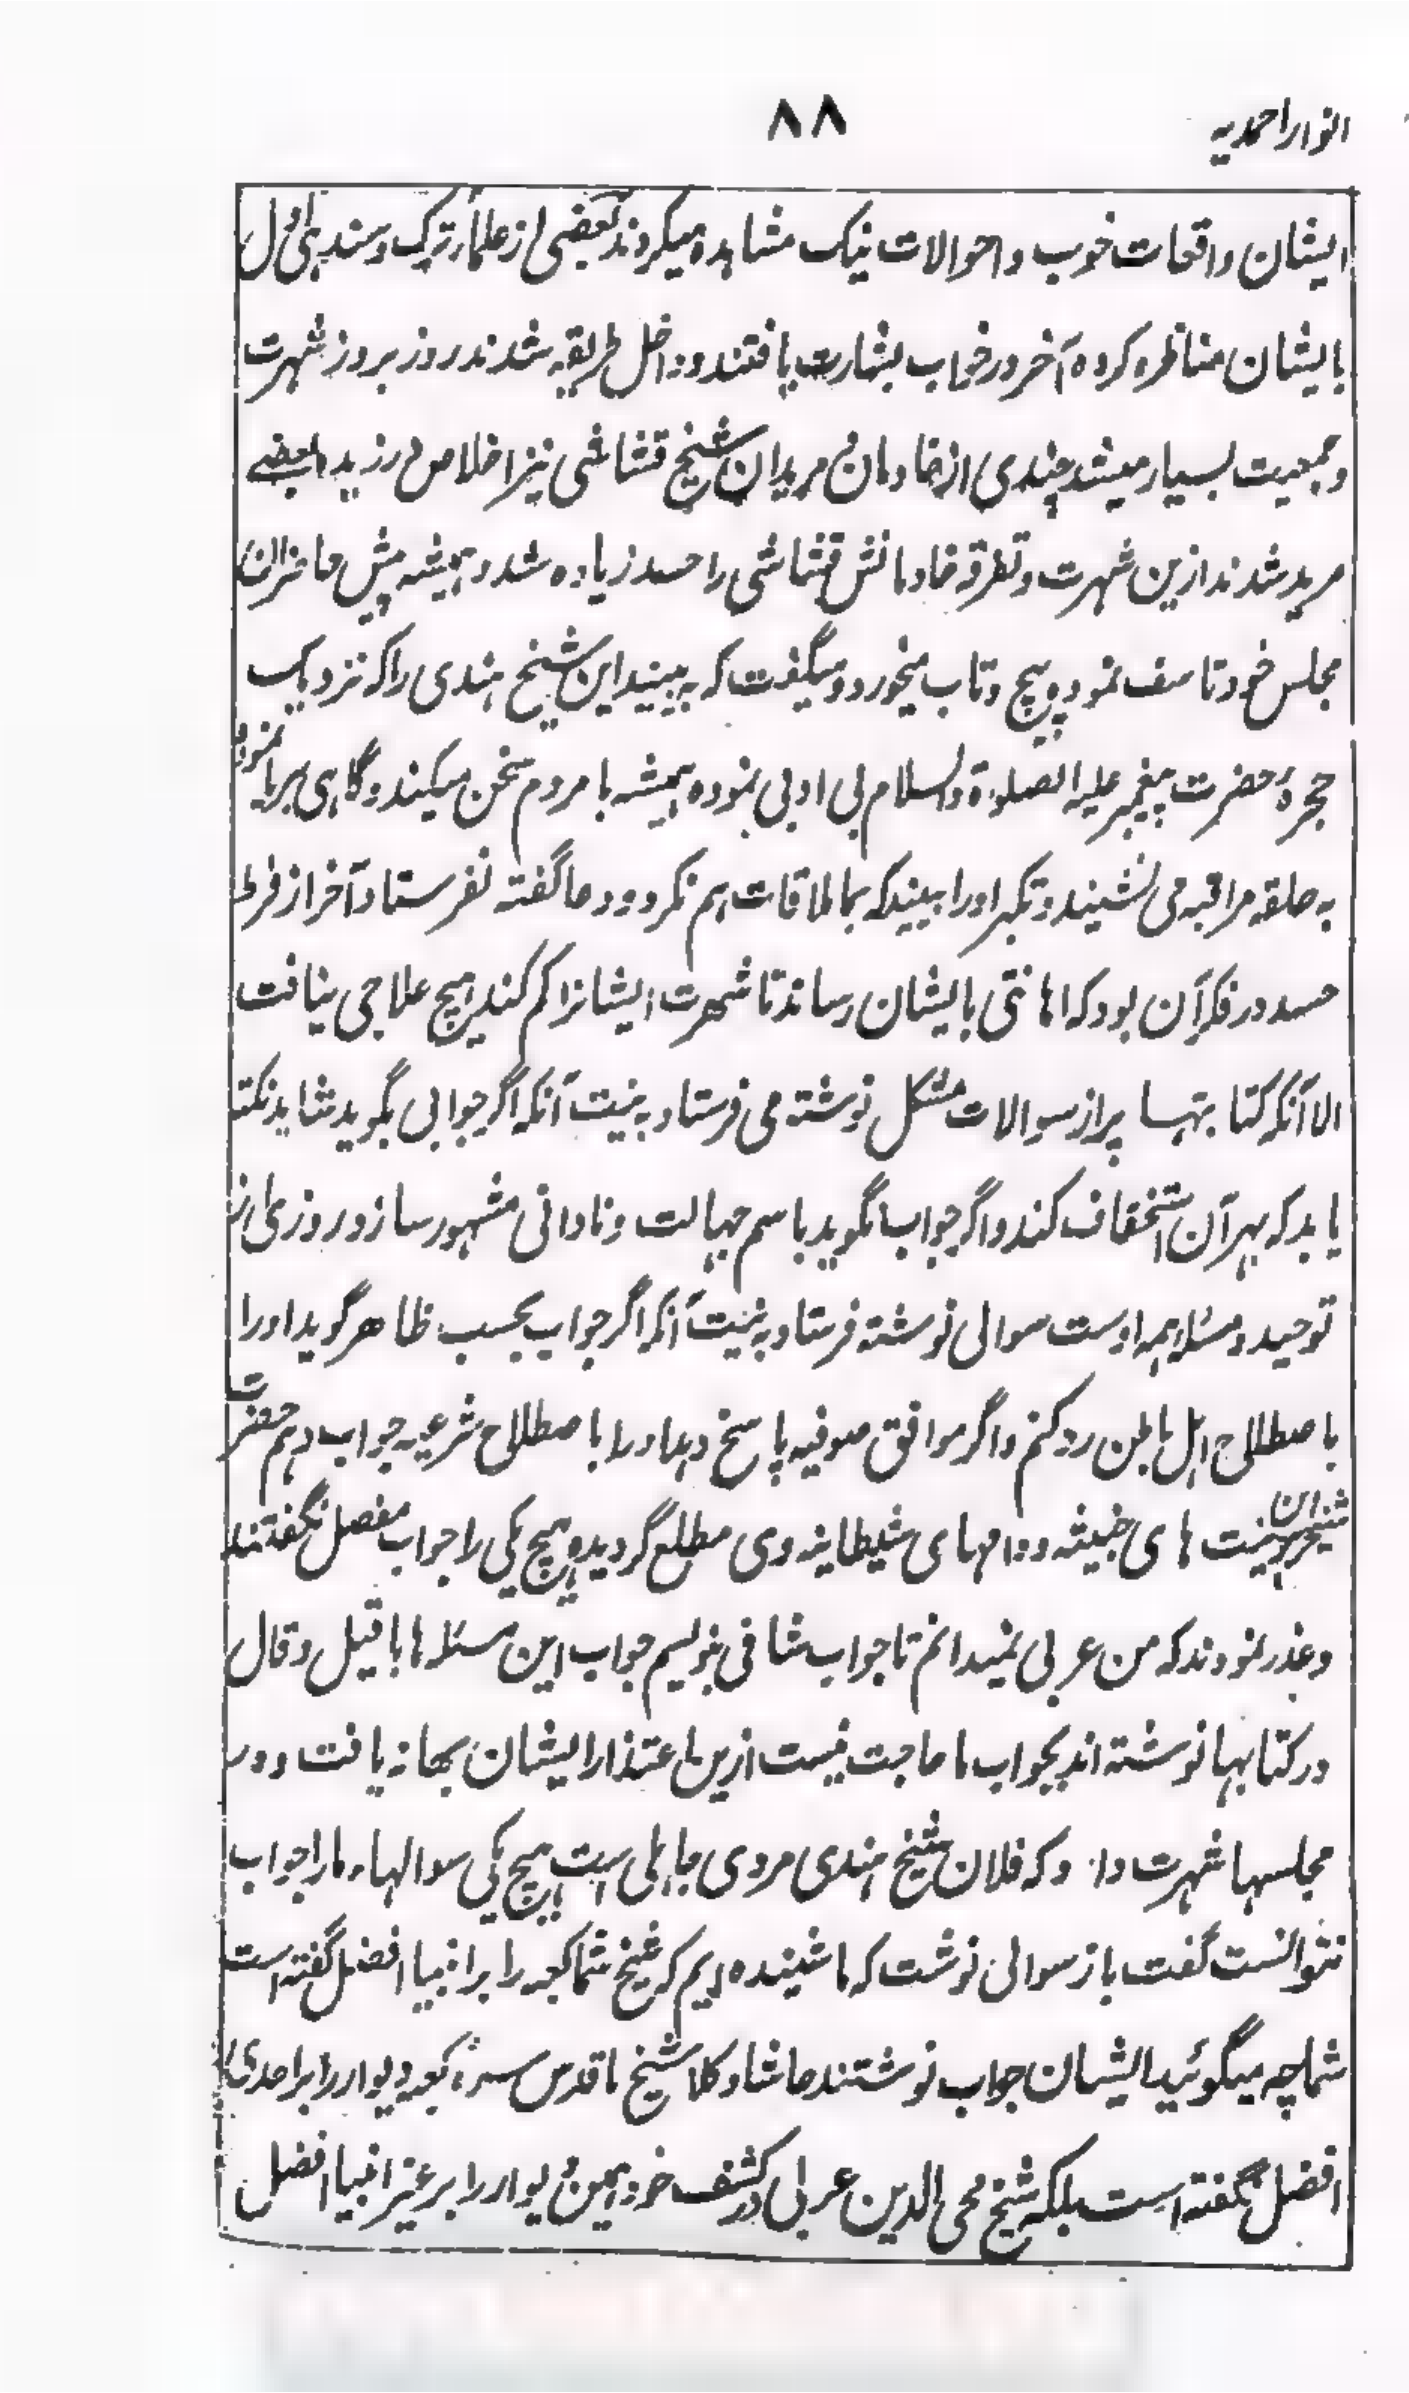 انوار احمدیہ
۸۸
ایشان واقعات خوب و احوالات نیک مشاہدہ میکردند بعضی از علماء ترک و سندہی اول
بایشان مناظرہ کردہ آخر در خواب بشارت یافتند و داخل طریقہ شدند روز بروز شہرت
و جمعیت بسیار میشد چندی از خادمان و مریدان شیخ قشاشی نیز اخلاص ورزیدہ بعضے
مرید شدند ازین شہرت و تفرقہ خادمانش قشاشی را حسد زیادہ شد و ہمیشہ پیش حاضران
مجلس خود تاسف نمودہ پیچ و تاب میخورد و میگفت کہ بہ بینید این شیخ ہندی را کہ نزدیک
حجرۂ حضرت پیغمبر علیہ الصلوۃ والسلام بی ادبی نمودہ ہمیشہ با مردم سخن میکند و گاہی سر پائین نمودہ
بہ حلقہ مراقبہ می نشیند و تکبر او را ببیند کہ بما ملاقات ہم نکرد و دعا گفتہ نفرستاد آخر از فرط
حسد در فکر آن بود کہ اہانتی بایشان رساند تا شہرت ایشانرا کم کند ہیچ علاجی نیافت
الا آنکہ کتابتہا پر از سوالات مشکل نوشتہ می فرستاد بہ نیت آنکہ اگر جوابی بگوید شاید نکتہ
یابد کہ بہر آن استخفاف کند و اگر جواب نگوید باسم جہالت و نادانی مشہور سازد روزی از
توحید و مسئلہ ہمہ اوست سوالی نوشتہ فرستاد بہ نیت آنکہ اگر جواب بحسب ظاہر گوید او را
باصطلاح اہل باطن رد کنم و اگر موافق صوفیہ پاسخ دہد او را باصطلاح شرعیہ جواب دہم حضرت
شیخ برین نیت ہای خبیثہ و دامہای شیطانیہ وی مطلع گردیدہ ہیچ یکی را جواب مفصل نگفتند
و عذر نمودند کہ من عربی نمیدانم تا جواب شافی بنویسم جواب این مسئلہ ہا با قیل و قال
در کتابہا نوشتہ اند بجواب ما حاجت نیست ازین اعتذار ایشان بہانہ یافت و در
مجلسہا شہرت داد و کہ فلان شیخ ہندی مردی جاہلی است ہیچ یکی سوالہاء مارا جواب
نتوانست گفت باز سوالی نوشت کہ ما شنیدہ ایم کہ شیخ شما کعبہ را بر انبیا افضل گفتہ است
شما چہ میگوئید ایشان جواب نوشتند حاشا و کلا شیخ ما قدس سرہ کعبہ دیوار را بر احدی
افضل نگفتہ است بلکہ شیخ محی الدین عربی در کشف خود ہمین دیوار را بر غیر انبیا افضل